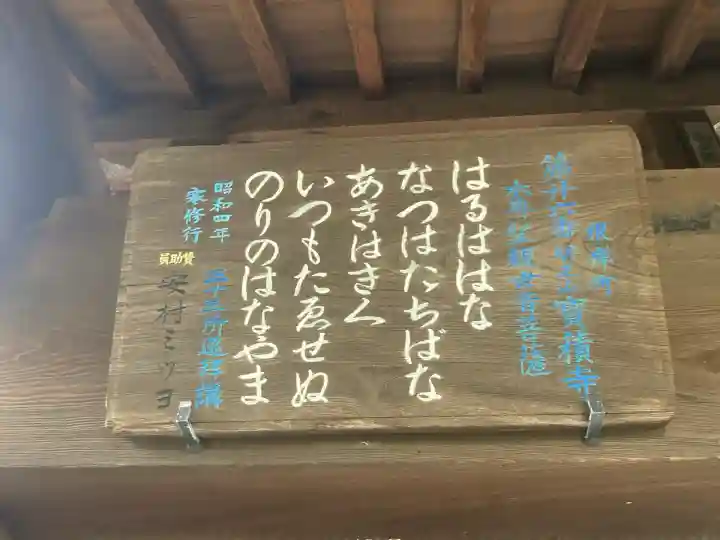 根岸町
寶積寺
はるははな
なつはたちばな
あきはきく
いつもたゑせぬ
のりのはなやま
昭和四年
寒修行
三十三所巡拝講
賛助員
安村ミツヨ